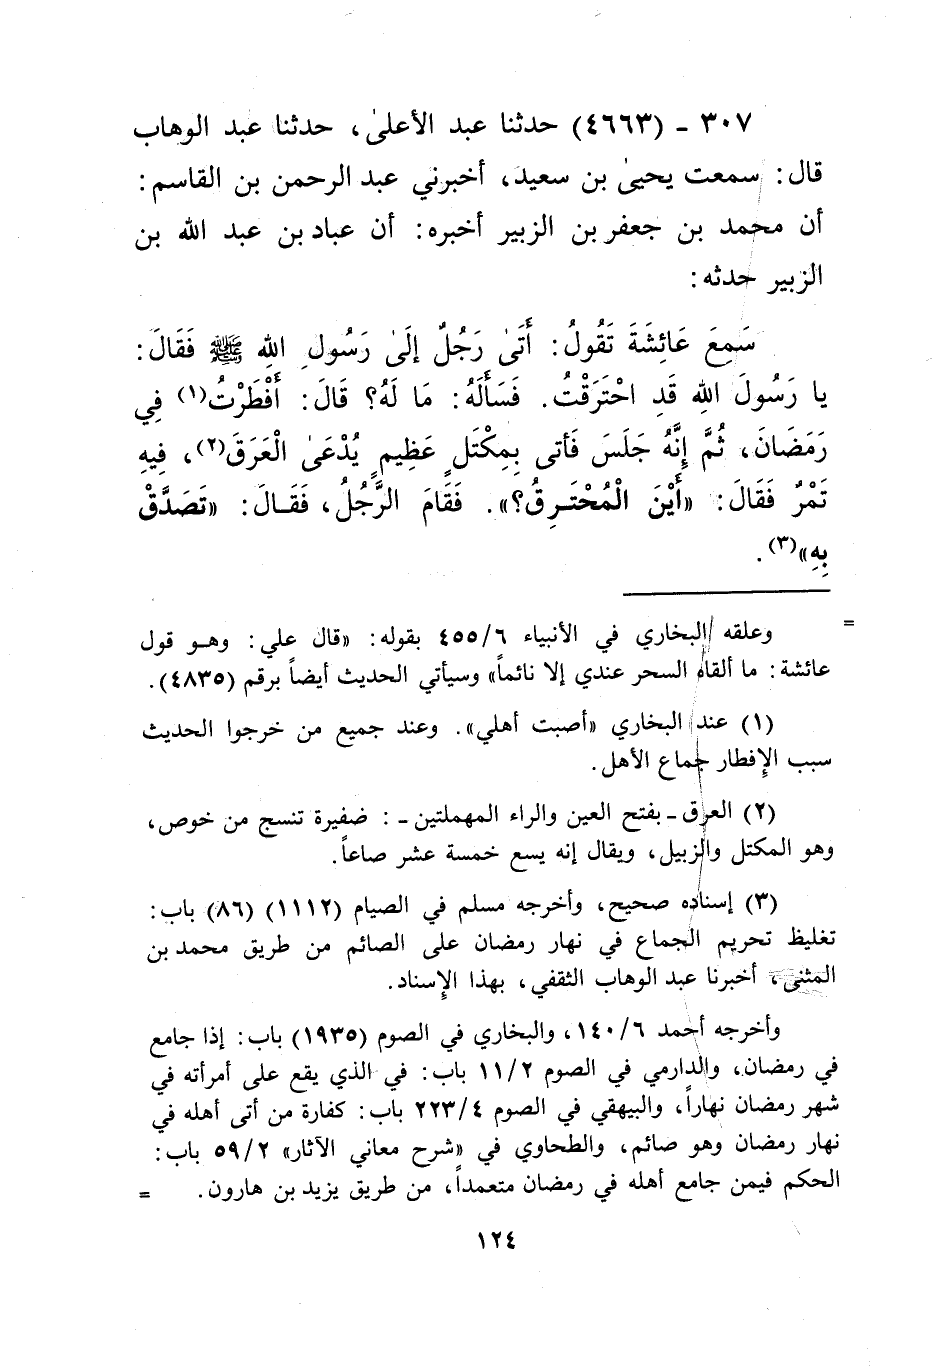 ٣٠٧ - (٤٦٦٣) حدثنا عبد الأعلىٰ، حدثنا عبد الوهاب
قال: سمعت يحيىٰ بن سعيد، أخبرني عبد الرحمن بن القاسم:
أن محمد بن جعفر بن الزبير أخبره: أن عباد بن عبد الله بن
الزبير حدثه:
سَمِعَ عَائِشَةَ تَقُولُ: أَتَىٰ رَجُلٌ إلَىٰ رَسُولِ اللهِ ﷺ فَقَالَ:
يا رَسُولَ اللهِ قَدِ احْتَرَقْتُ. فَسَأَلَهُ: مَا لَهُ؟ قَالَ: أَفْطَرْتُ(١) فِي
رَمَضَانَ، ثُمَّ إِنَّهُ جَلَسَ فَأتى بِمِكْتَلٍ عَظِيمٍ يُدْعَىٰ الْعَرَقَ(٢)، فِيهِ
تَمْرٌ فَقَالَ: «أَيْنَ الْمُحْتَرِقُ؟». فَقَامَ الرَّجُلُ، فَقَالَ: «تَصَدَّقْ
بِهِ»(٣).
= وعلقه البخاري في الأنبياء ٤٥٥/٦ بقوله: «قال علي: وهو قول
عائشة: ما ألقاه السحر عندي إلا نائماً» وسيأتي الحديث أيضاً برقم (٤٨٣٥).
(١) عند البخاري «أصبت أهلي». وعند جميع من خرجوا الحديث
سبب الإفطار جماع الأهل.
(٢) العرق - بفتح العين والراء المهملتين -: ضفيرة تنسج من خوص،
وهو المكتل والزبيل، ويقال إنه يسع خمسة عشر صاعاً.
(٣) إسناده صحيح، وأخرجه مسلم في الصيام (١١١٢) (٨٦) باب:
تغليظ تحريم الجماع في نهار رمضان على الصائم من طريق محمد بن
المثنى، أخبرنا عبد الوهاب الثقفي، بهذا الإسناد.
وأخرجه أحمد ١٤٠/٦، والبخاري في الصوم (١٩٣٥) باب: إذا جامع
في رمضان، والدارمي في الصوم ١١/٢ باب: في الذي يقع على أمرأته في
شهر رمضان نهاراً، والبيهقي في الصوم ٢٢٣/٤ باب: كفارة من أتى أهله في
نهار رمضان وهو صائم، والطحاوي في «شرح معاني الآثار» ٥٩/٢ باب:
الحكم فيمن جامع أهله في رمضان متعمداً، من طريق يزيد بن هارون. =
١٢٤